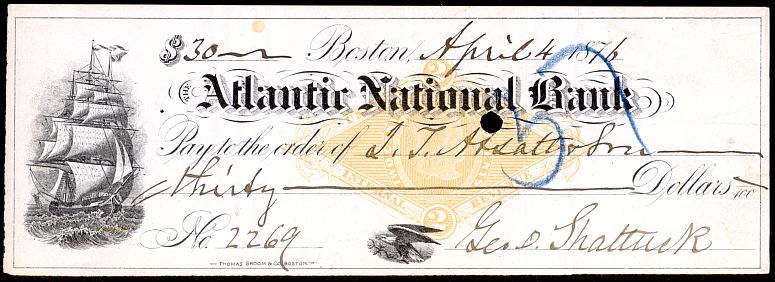 $30 Boston, April 4 1876
THE Atlantic National Bank
Pay to the order of
thirty Dollars /100
No. 2269 Geo. O. Shattuck
THOMAS GROOM & CO. BOSTON.
2
TWO
INTERNAL REVENUE
2
57